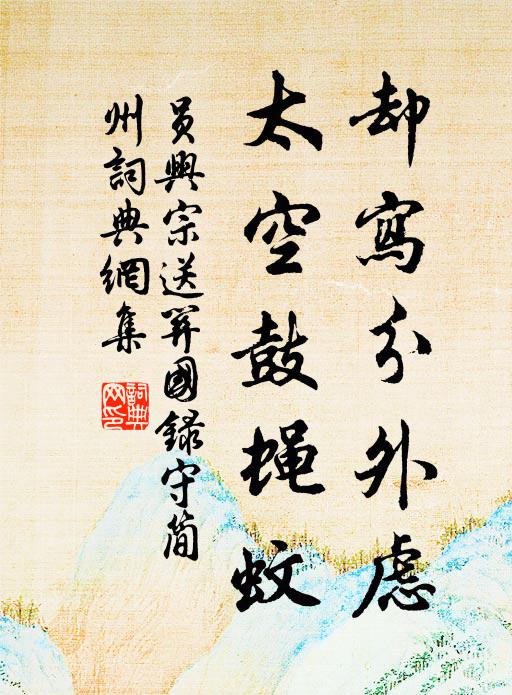 却寫分外慮
太空鼓蝇蚊
員興宗送羿國錄守简
州詞典網集
詞典網印